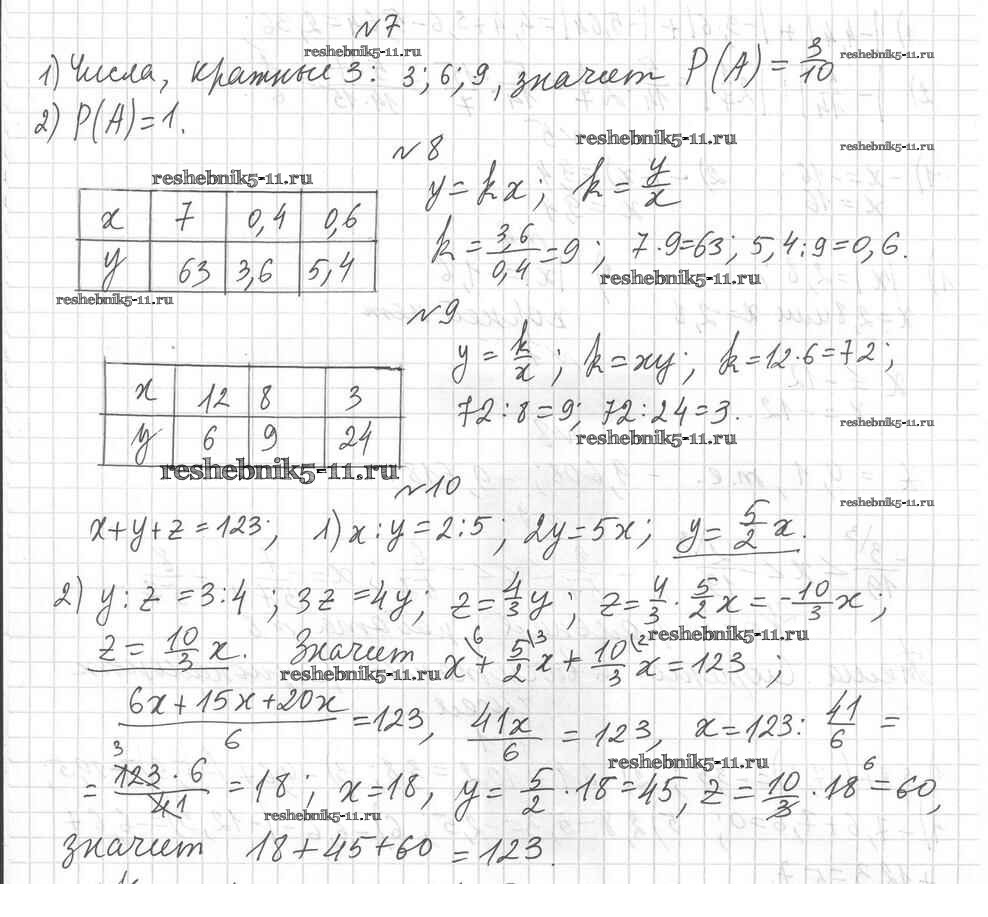 №7
reshebnik5-11.ru
reshebnik5-11.ru
1) Числа, кратные 3: 3; 6; 9, значит P(A) = 3/10
2) P(A)=1.
reshebnik5-11.ru
reshebnik5-11.ru
№8
reshebnik5-11.ru
x 7 0,4 0,6
y 63 3,6 5,4
y = kx; k = y/x
k = 3,6/0,4 = 9; 7·9=63; 5,4:9=0,6.
reshebnik5-11.ru
reshebnik5-11.ru
№9
x 12 8 3
y 6 9 24
y = k/x; k = xy; k = 12·6 = 72;
72:8=9; 72:24=3.
reshebnik5-11.ru
reshebnik5-11.ru
reshebnik5-11.ru
№10
reshebnik5-11.ru
x+y+z=123; 1) x:y=2:5; 2y=5x; y=5/2 x.
2) y:z=3:4; 3z=4y; z=4/3 y; z=4/3·5/2 x=-10/3 x;
reshebnik5-11.ru
z=10/3 x. Значит x\6 + 5/2\3 x + 10/3\2 x = 123;
reshebnik5-11.ru
6x+15x+20x/6 = 123, 41x/6 = 123, x=123: 41/6 =
reshebnik5-11.ru
= 3 123·6/41 = 18; x=18, y=5/2·18=45, z=10/3·18 6 = 60,
reshebnik5-11.ru
значит 18+45+60=123.